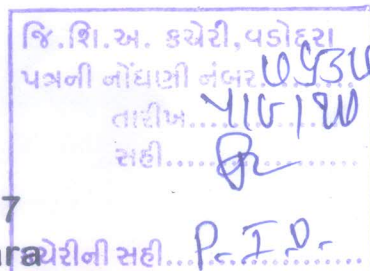 જિ.શિ.અ. કચેરી,વડોદરા
પત્રની નોંધણી નંબર
તારીખ
સહી
7
ara
કચેરીની સહી... P.I.D.